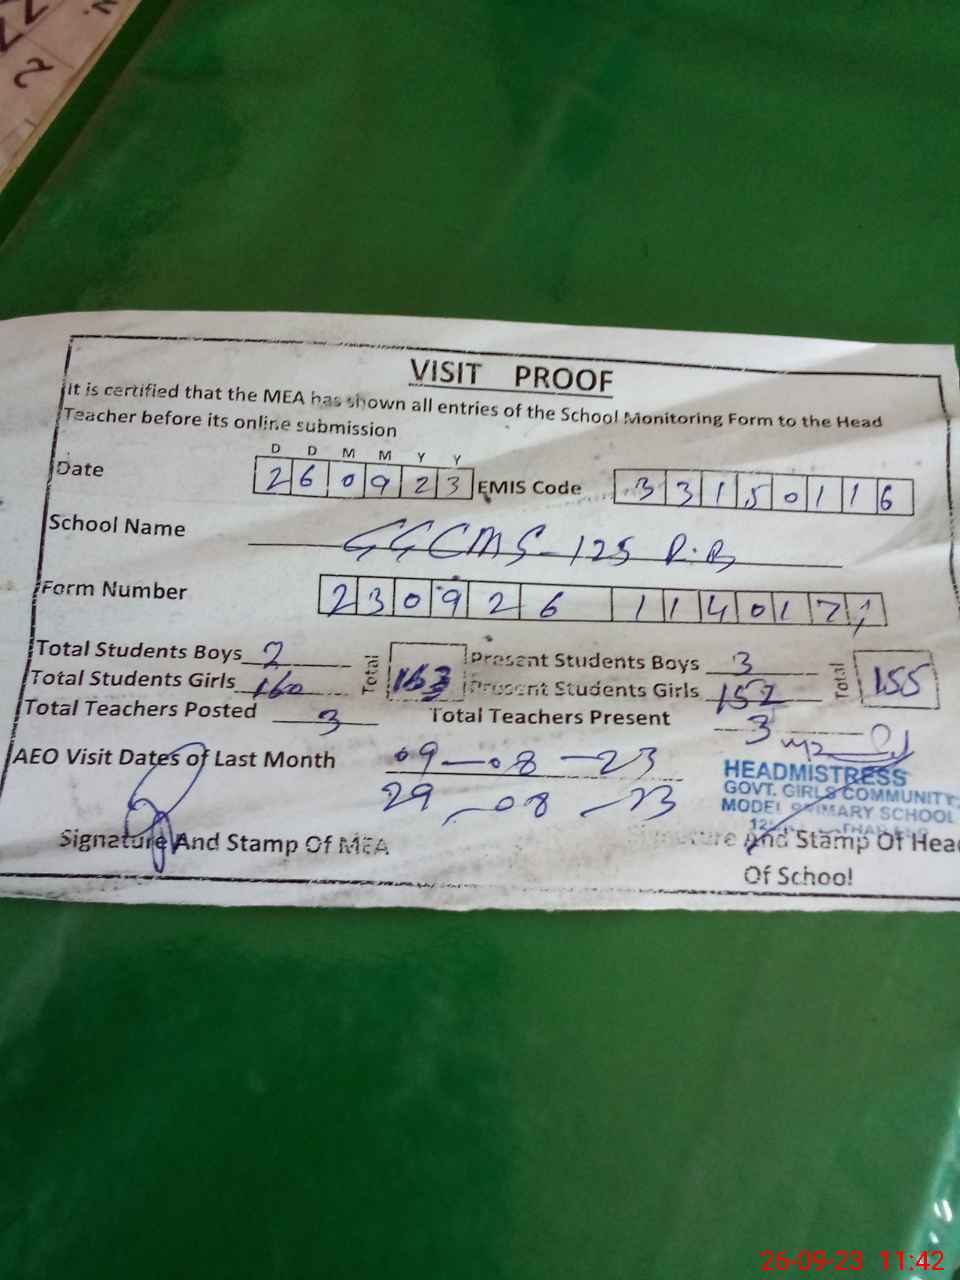 VISIT PROOF
It is certified that the MEA has shown all entries of the School Monitoring Form to the Head
Teacher before its online submission
D D M M Y Y
Date 2 6 0 9 2 3 EMIS Code 3 3 1 5 0 1 1 6
School Name GGCMS-125 R.B
Form Number 2 3 0 9 2 6 1 1 4 0 1 7
Total Students Boys 2 Total 163 Present Students Boys 3 Total 155
Total Students Girls 160 Present Students Girls 152
Total Teachers Posted 3 Total Teachers Present 3
AEO Visit Dates of Last Month 09-08-23
29-08-23
HEADMISTRESS
GOVT. GIRLS COMMUNITY
MODEL PRIMARY SCHOOL
Signature And Stamp Of MEA Signature And Stamp Of Head
Of School
26-09-23 11:42